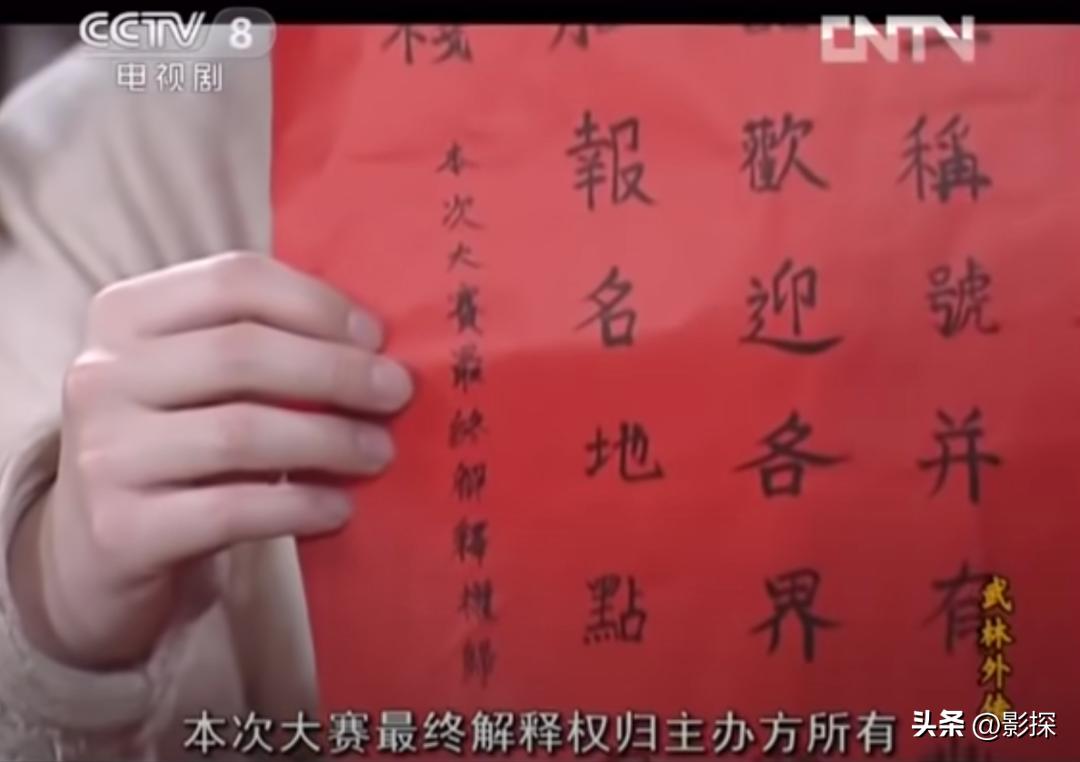 CCTV 8
电视剧
CNTN
稱號并有
歡迎各界
報名地點
棧
本次大賽最終解釋權歸
武林外传
本次大赛最终解释权归主办方所有
头条 @影探